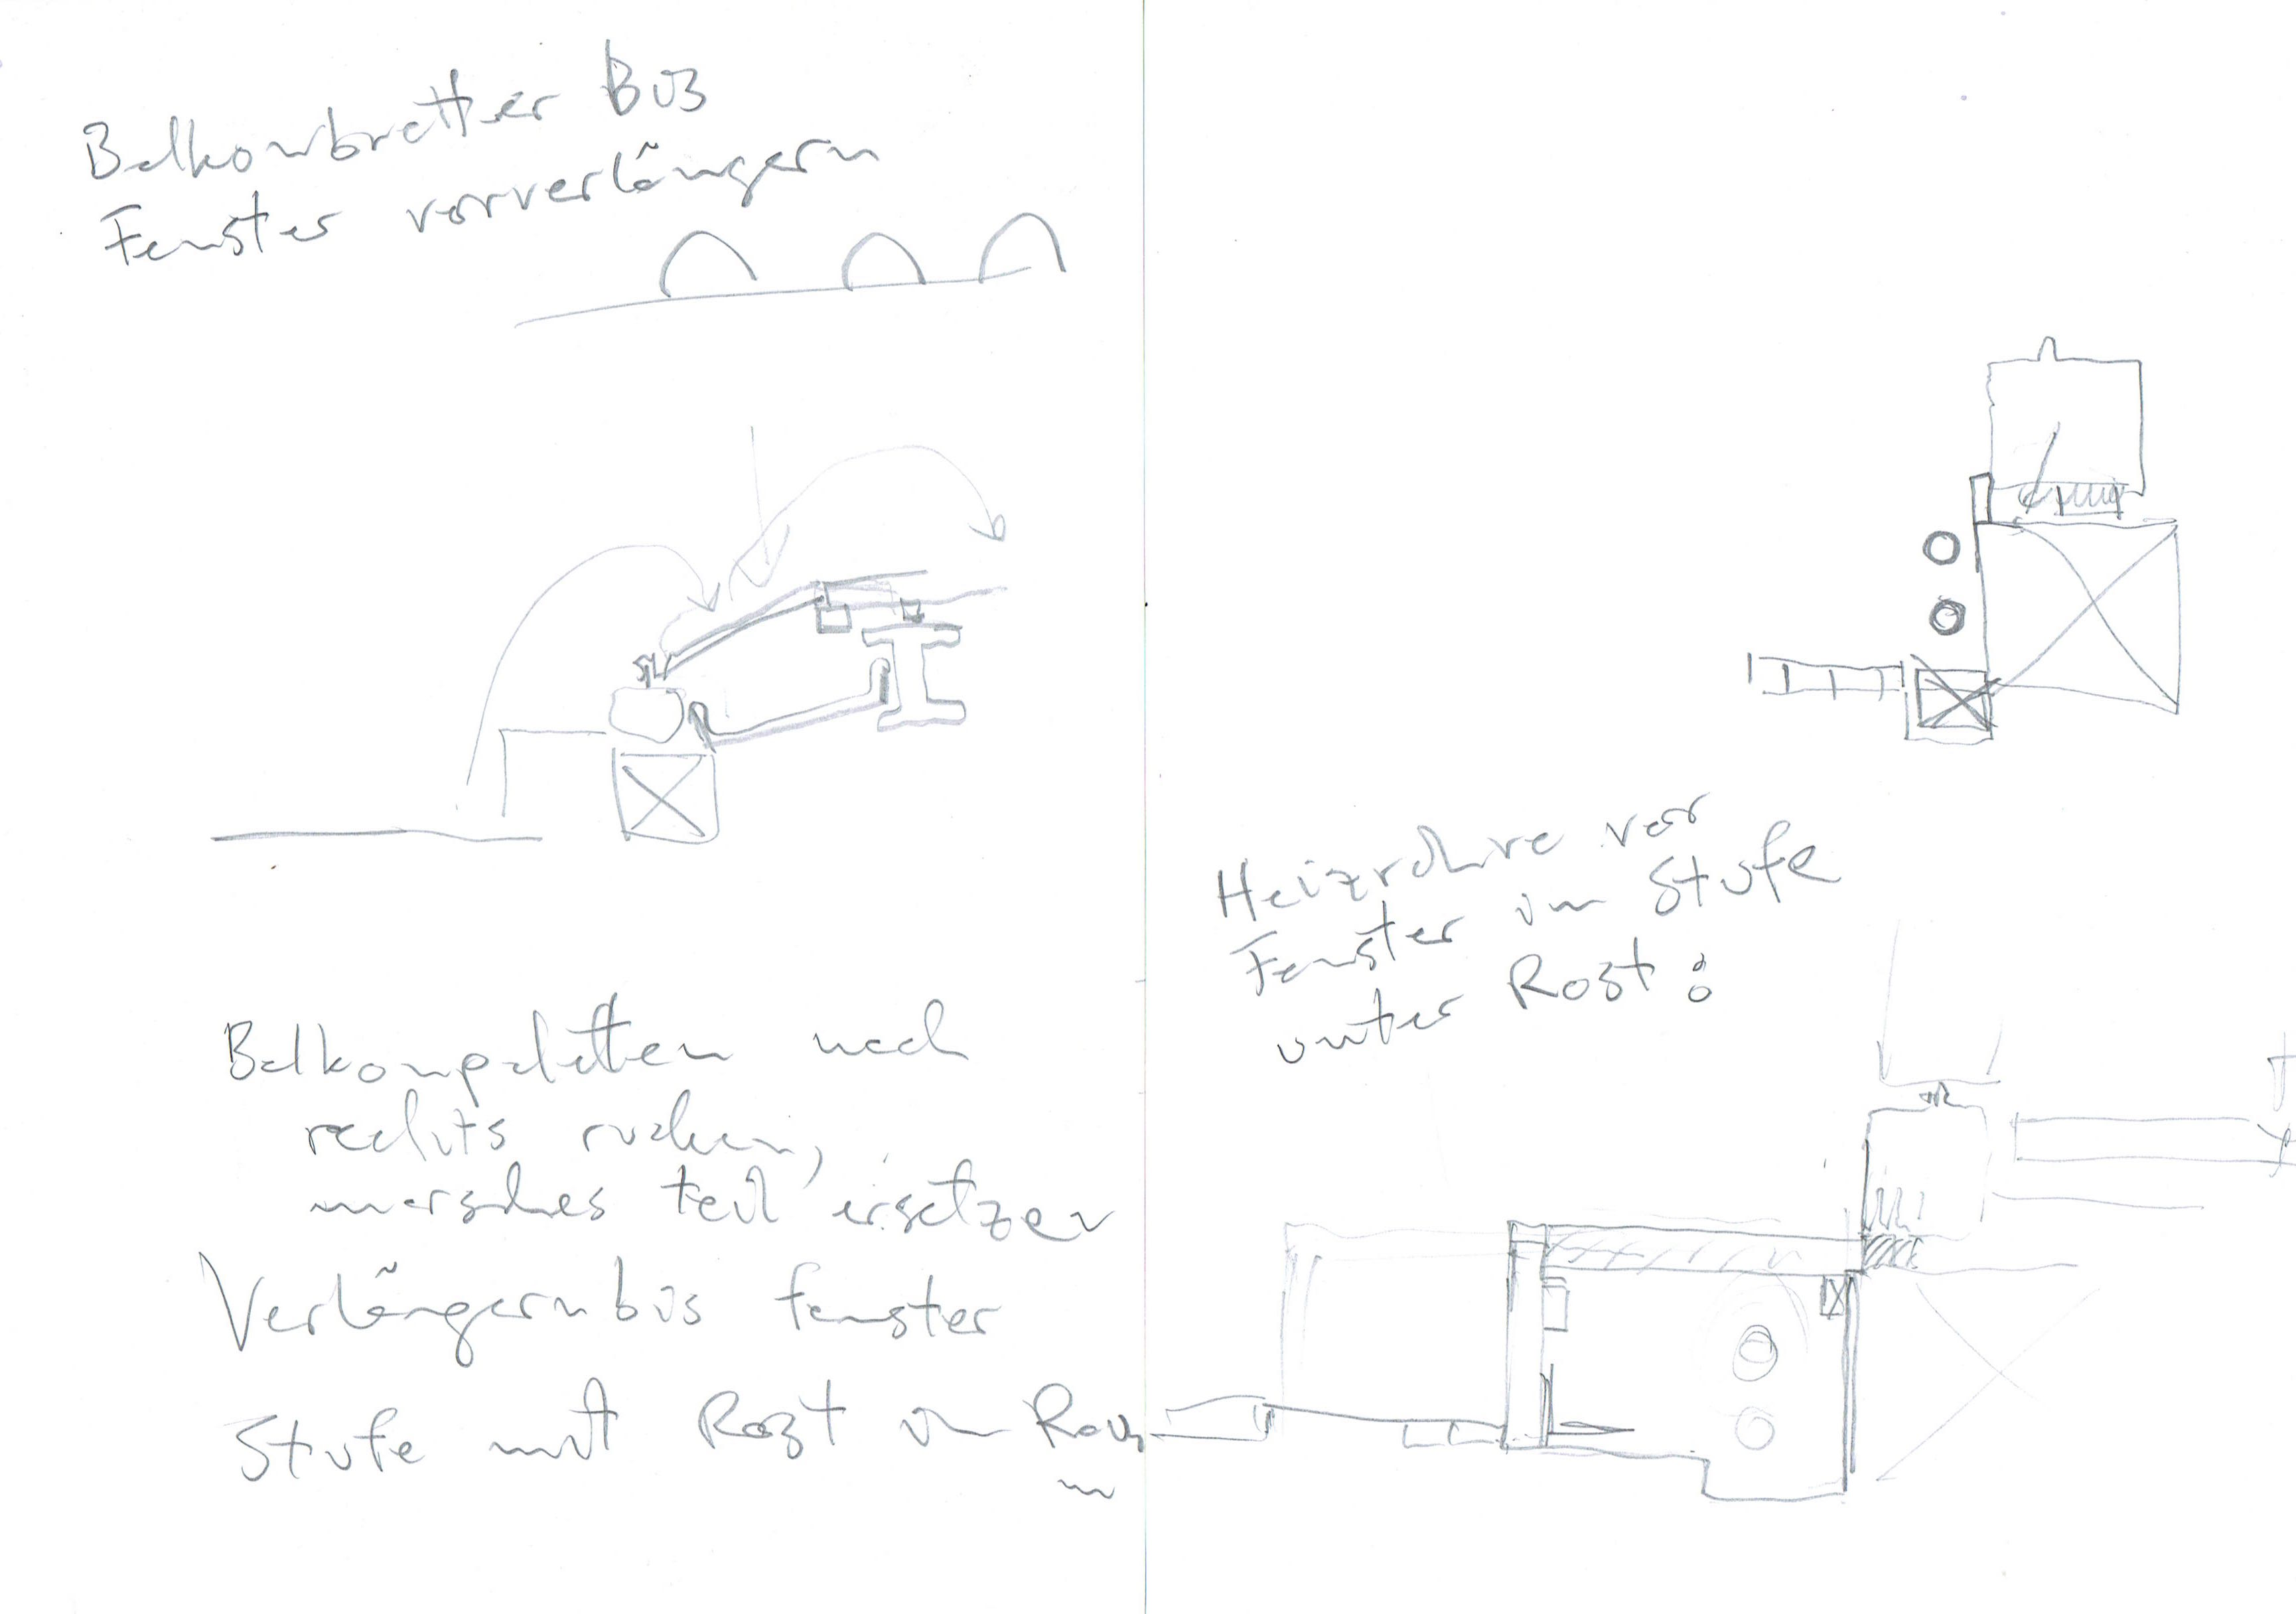 Balkonbretter Bis
Fenster vorverlängern
Balkonpaletten nach
rechts rucken,
morsches teil ersetzen
Verlängern bis fenster
Stufe mit Rost in Raum
Heizrohre vor
Fenster in Stufe
unter Rost: